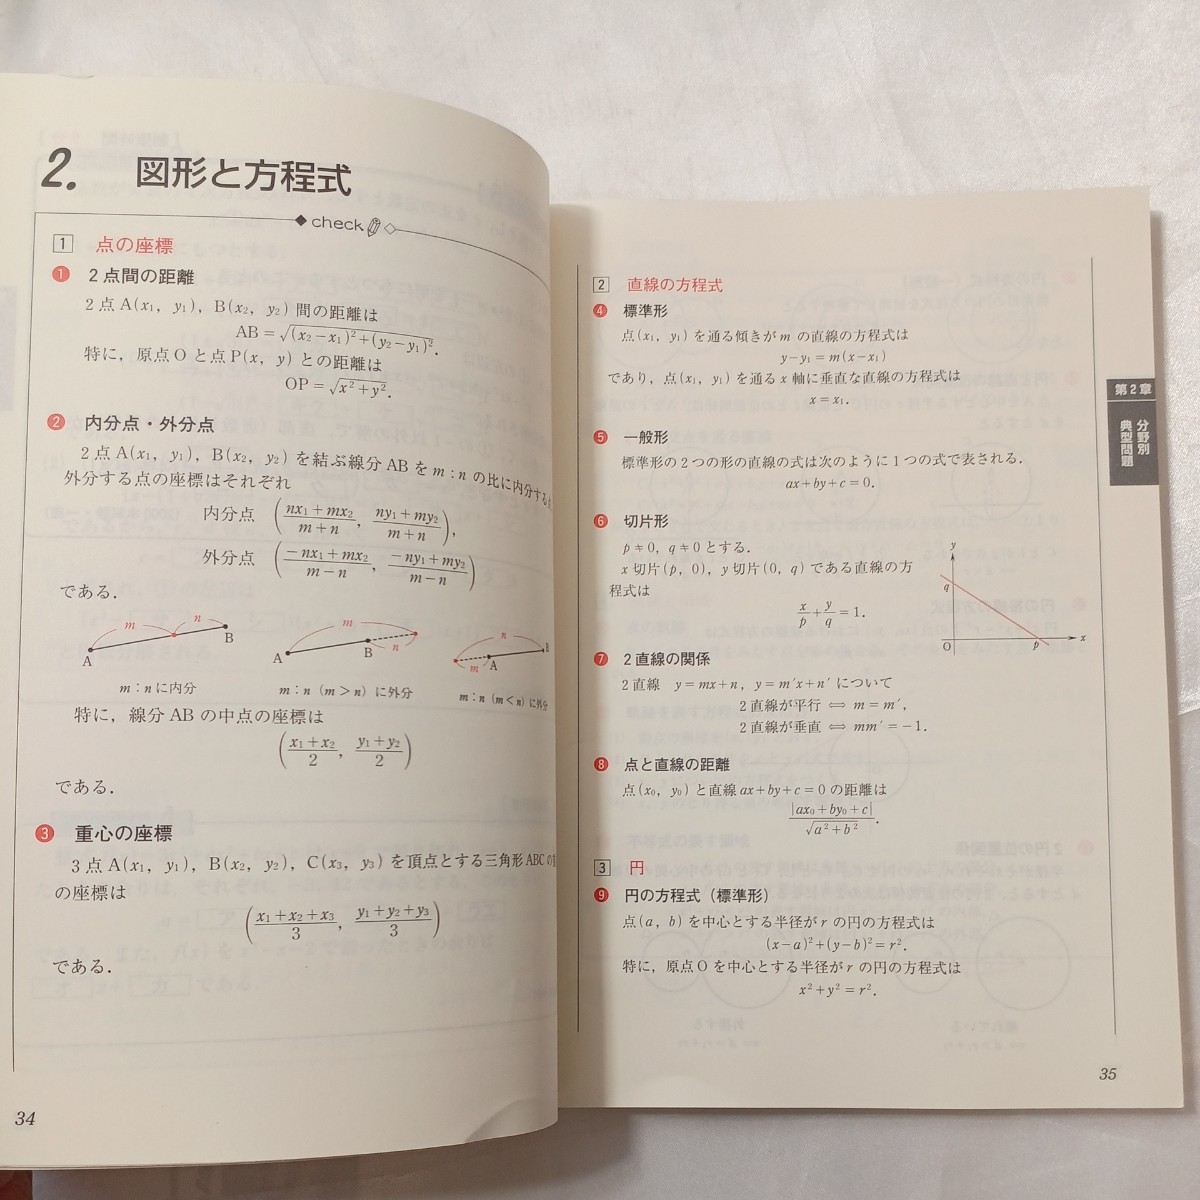 2. 図形と方程式
check
1 点の座標
1 2点間の距離
2点A(x₁, y₁), B(x₂, y₂)間の距離は
AB=√((x₂−x₁)²+(y₂−y₁)²).
特に，原点Oと点P(x, y)との距離は
OP=√(x²+y²).
2 内分点・外分点
2点A(x₁, y₁), B(x₂, y₂)を結ぶ線分ABをm：nの比に内分する
外分する点の座標はそれぞれ
内分点 ((nx₁+mx₂)/(m+n), (ny₁+my₂)/(m+n)),
外分点 ((−nx₁+mx₂)/(m−n), (−ny₁+my₂)/(m−n))
である．
m n A B
m A B n
n m A B
m：nに内分
m：n（m>n）に外分
m：n（m<n）に外分
特に，線分ABの中点の座標は
((x₁+x₂)/2, (y₁+y₂)/2)
である．
3 重心の座標
3点A(x₁, y₁), B(x₂, y₂), C(x₃, y₃)を頂点とする三角形ABCの
の座標は
((x₁+x₂+x₃)/3, (y₁+y₂+y₃)/3)
である．
34
2 直線の方程式
4 標準形
点(x₁, y₁)を通る傾きがmの直線の方程式は
y−y₁=m(x−x₁)
であり，点(x₁, y₁)を通るx軸に垂直な直線の方程式は
x=x₁.
5 一般形
標準形の2つの形の直線の式は次のように1つの式で表される．
ax+by+c=0.
6 切片形
p≠0, q≠0とする．
x切片(p, 0), y切片(0, q)である直線の方
程式は
x/p+y/q=1.
y
q
O p x
7 2直線の関係
2直線 y=mx+n, y=m′x+n′について
2直線が平行 ⟺ m=m′,
2直線が垂直 ⟺ mm′=−1.
8 点と直線の距離
点(x₀, y₀)と直線ax+by+c=0の距離は
|ax₀+by₀+c|/√(a²+b²).
3 円
9 円の方程式（標準形）
点(a, b)を中心とする半径がrの円の方程式は
(x−a)²+(y−b)²=r².
特に，原点Oを中心とする半径がrの円の方程式は
x²+y²=r².
第2章
分野別
典型問題
35